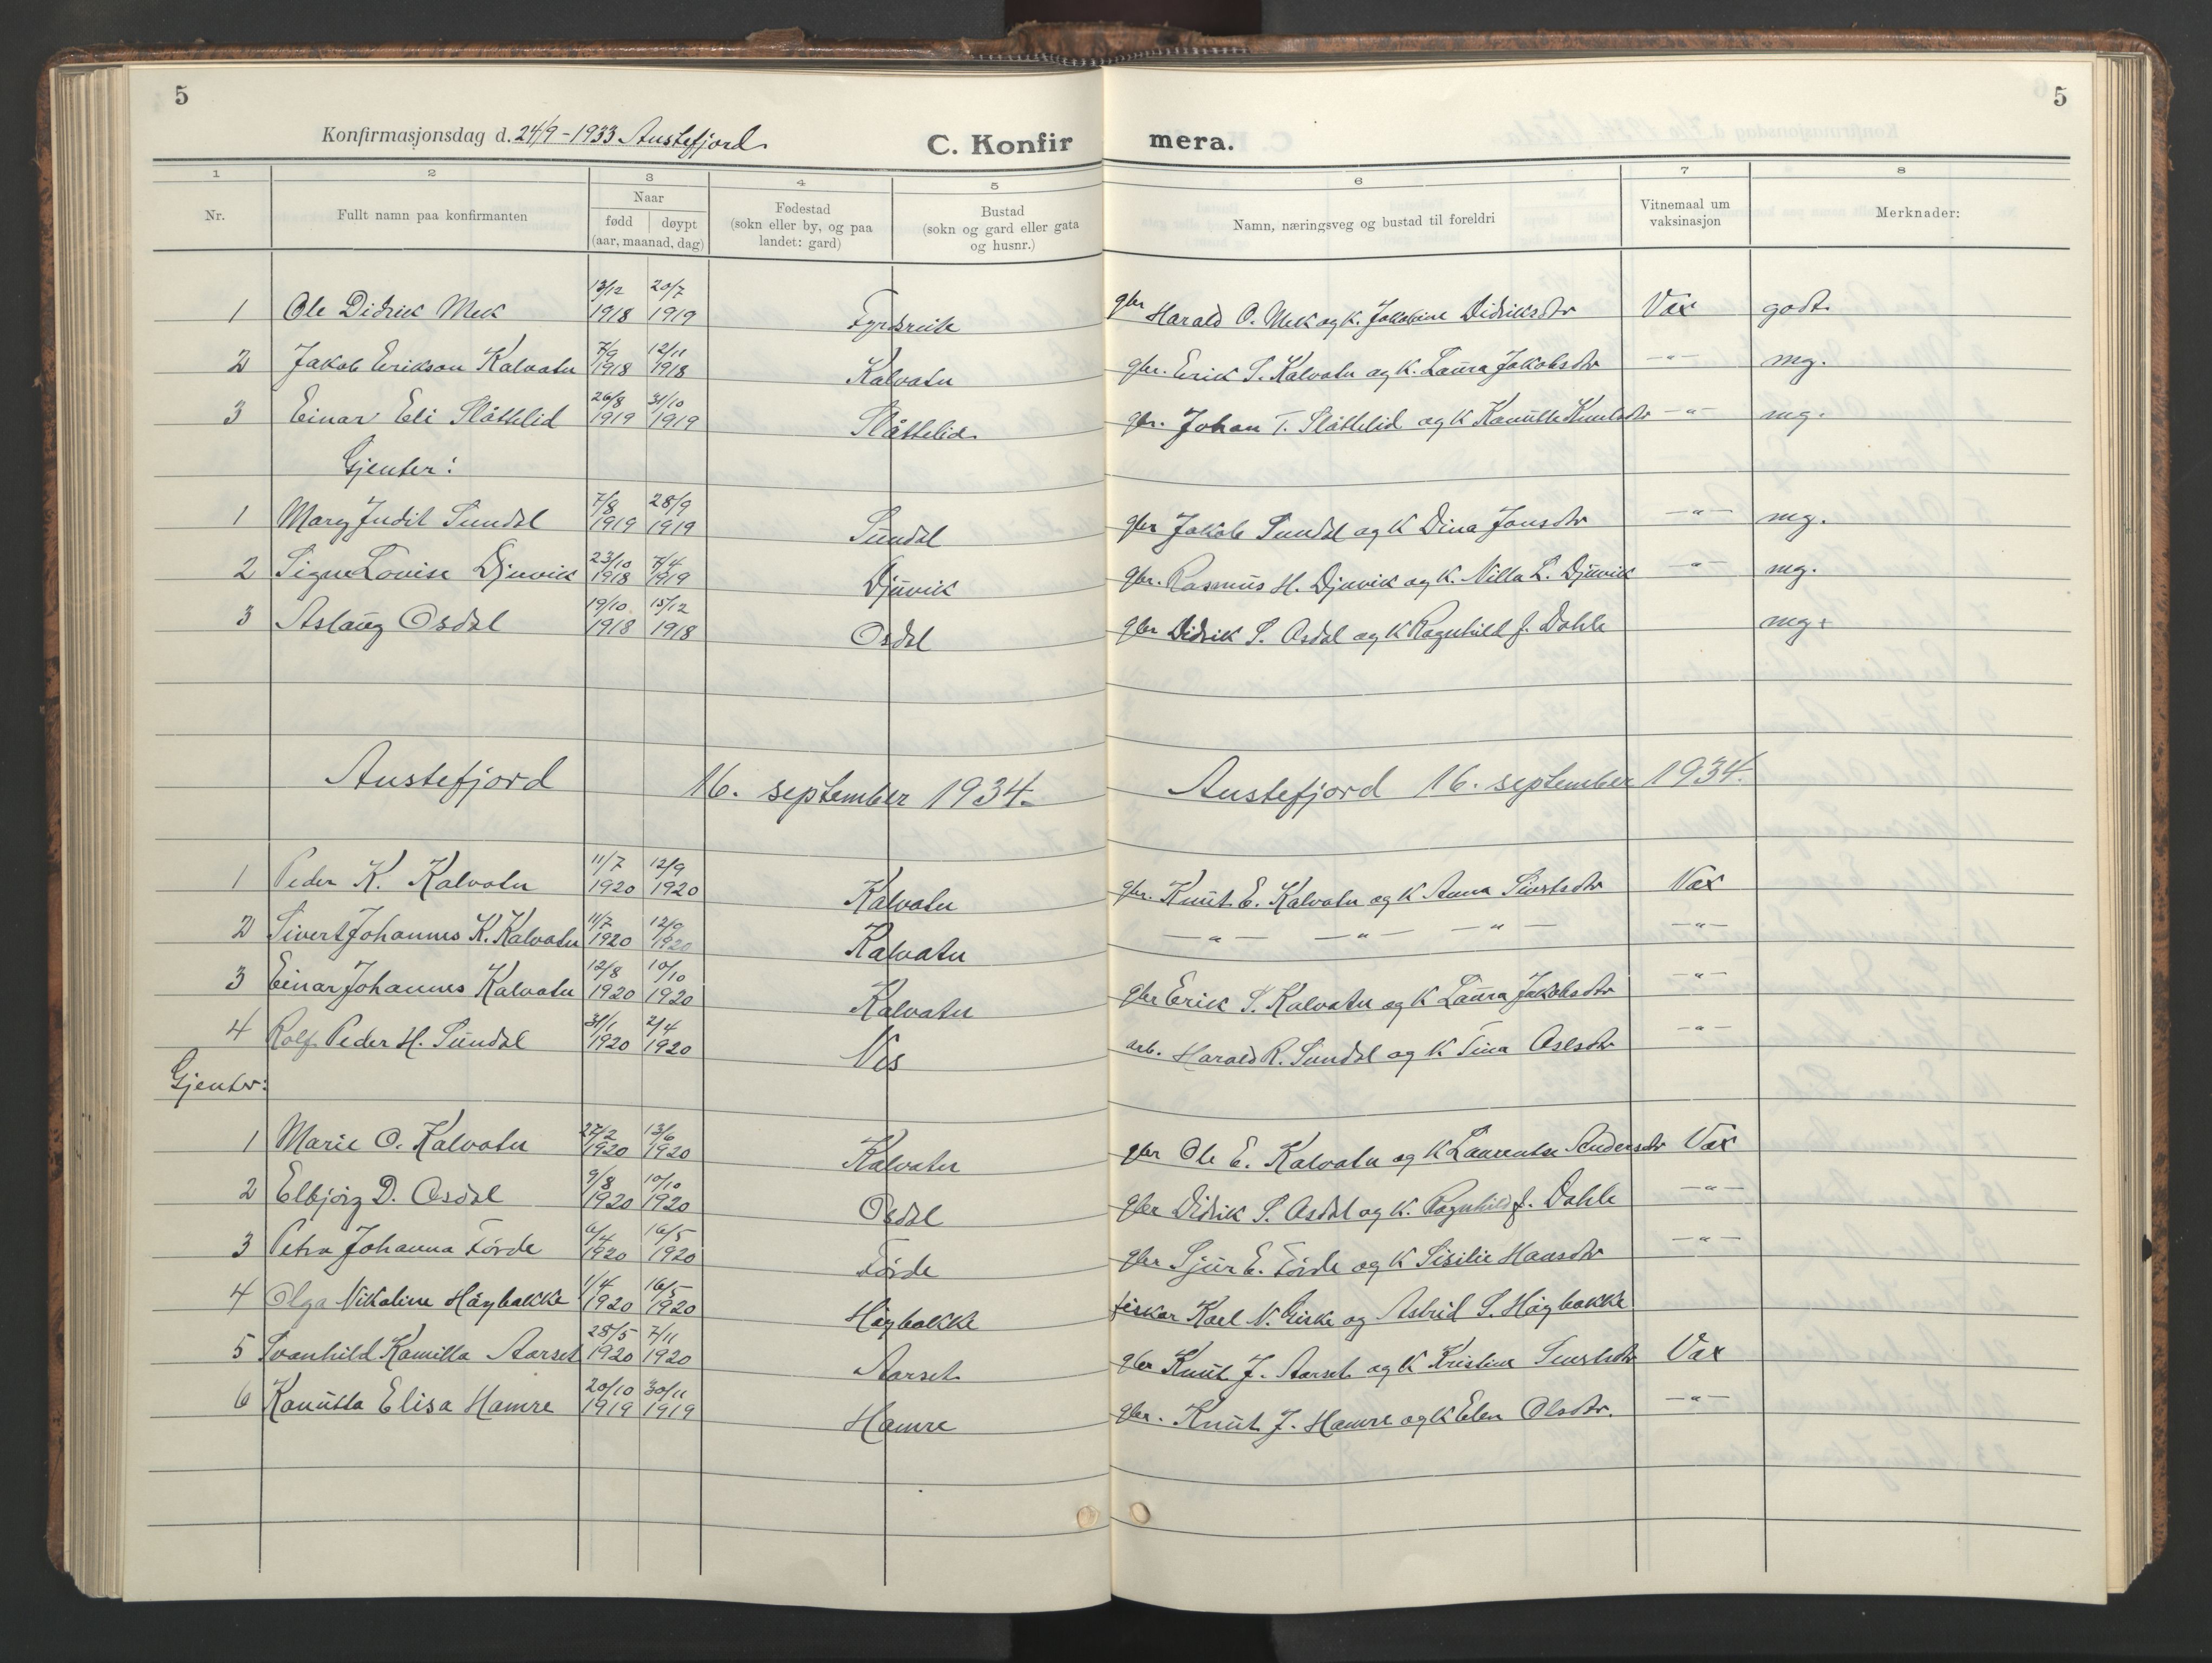 5
5
Konfirmasjonsdag d. 24/9-1933 Austefjord.
C. Konfir mera.
1 2 3 4 5 6 7 8
Nr. Fullt namn paa konfirmanten Naar fødd døypt (aar, maanad, dag) Fødestad (sokn eller by, og paa landet: gard) Bustad (sokn og gard eller gata og husnr.) Namn, næringsveg og bustad til foreldri Vitnemaal um vaksinasjon Merknader:
1 Ole Didrik Mek 13/12 1918 20/7 1919 gbr Harald O. Mek og k. Jakobine Didriksdtr Vax godt.
2 Jakob Erikson Kalvatn 7/9 1918 12/11 1918 Kalvatn gbr. Erik S. Kalvatn og k. Laura Jakobsdtr —"— mg.
3 Einar Eli Slåttelid 26/8 1919 31/10 1919 Slåttelid. gbr. Johan T. Slåttelid og k Kanutte Knutsdtr —"— mg.
Gjenter:
1 Mary Judit Sundal 7/8 1919 28/9 1919 Sundal gbr Jakob Sundal og k Dina Jonsdtr —"— mg.
2 Signe Lovise Djuvik 23/10 1918 7/4 1919 Djuvik gbr. Rasmus H. Djuvik og k. Nilla L. Djuvik —"— mg.
3 Aslaug Osdal 19/10 1918 15/12 1918 Osdal gbr Didrik S. Osdal og k Ragnhild J. Dahle mg+
Austefjord 16. september 1934. Austefjord 16. september 1934.
1 Peder K. Kalvatn 11/7 1920 12/9 1920 Kalvatn gbr. Knut E. Kalvatn og k Anna Sivertsdtr Vax
2 Sivert Johannes K. Kalvatn 11/7 1920 12/9 1920 Kalvatn —"— —"— —"— —"—
3 Einar Johannes Kalvatn 12/8 1920 10/10 1920 Kalvatn gbr Erik S. Kalvatn og k Laura Jakobsdtr —"—
4 Rolf Peder H. Sundal 31/1 1920 2/4 1920 Nes arb. Harald R. Sundal og k Tina Olsdtr —"—
Gjenter:
1 Marie O. Kalvatn 27/2 1920 13/6 1920 Kalvatn gbr Ole E. Kalvatn og k Laurentse Andersdtr Vax
2 Elbjørg D. Osdal 9/8 1920 10/10 1920 Osdal gbr Didrik S. Osdal og k. Ragnhild J. Dahle —"—
3 Petra Johanna Førde 6/4 1920 16/5 1920 Førde gbr Sjur E. Førde og k Sisilie Hansdtr —"—
4 Olga Nikoline Høybakke 1/4 1920 16/5 1920 Høybakke fiskar Karl N. Giske og Astrid S. Høybakke
5 Svanhild Kamilla Aarset 28/5 1920 7/11 1920 Aarset gbr Knut J. Aarset og k Kristine Sivertsdtr Vax
6 Kanutta Elisa Hamre 20/10 1919 30/11 1919 Hamre gbr. Knut J. Hamre og k Elen Olsdtr. —"—